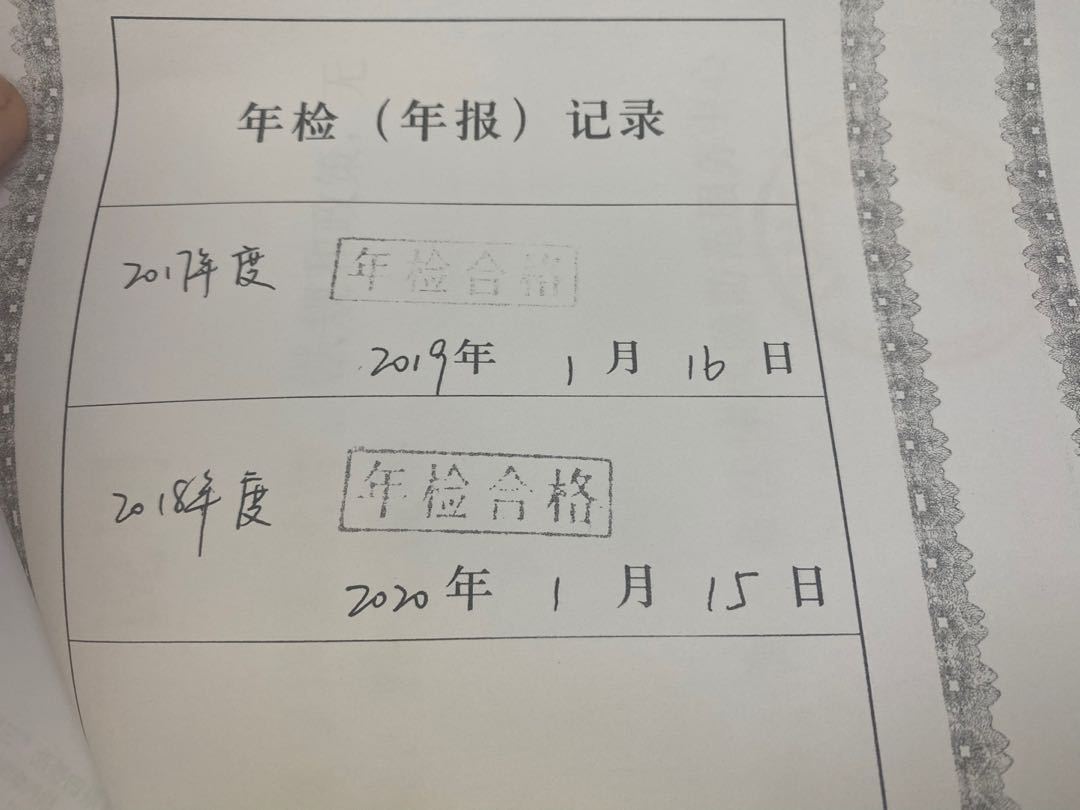 年检（年报）记录
2017年度 年检合格
2019年 1月 16日
2018年度 年检合格
2020年 1月 15日